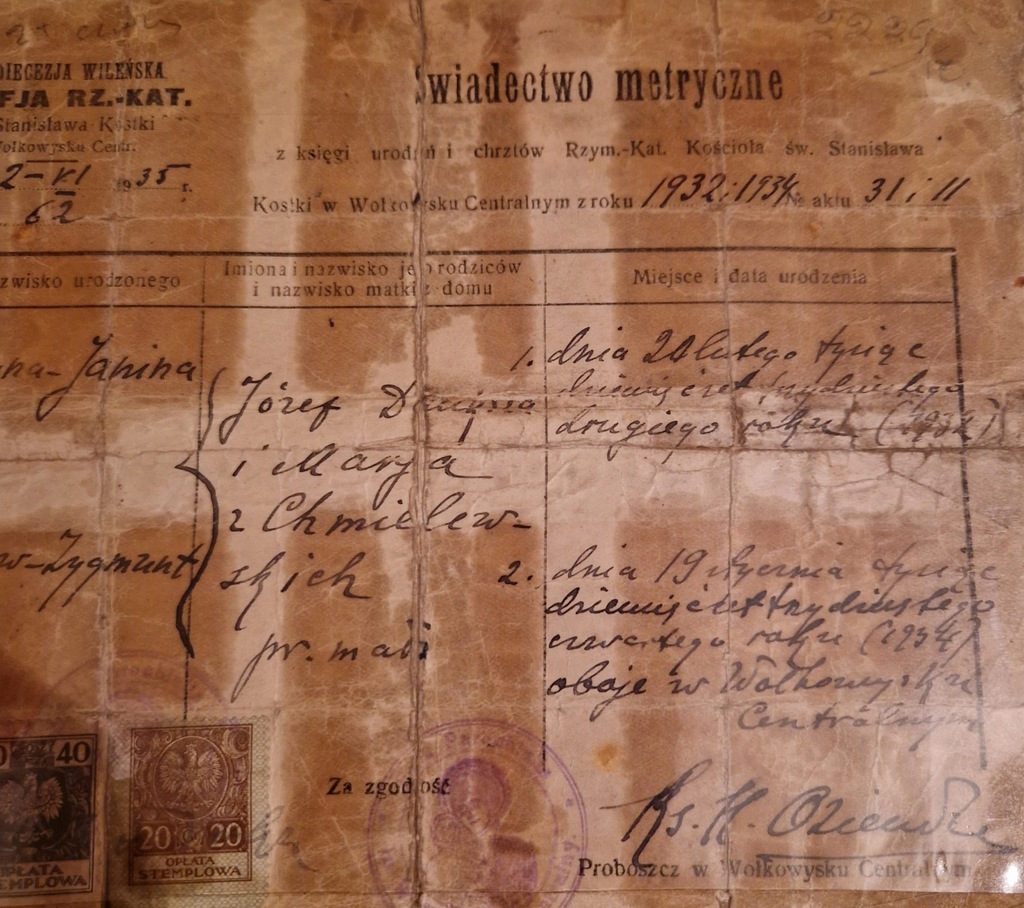 DIECEZJA WILEŃSKA
FJA RZ.-KAT.
Stanisława Kostki
Wołkowysku Centr.
2-VI 1935 r.
62
Świadectwo metryczne
z księgi urodzeń i chrztów Rzym.-Kat. Kościoła św. Stanisława
Kostki w Wołkowysku Centralnym z roku 1932 i 1934 № aktu 31 i 11
zwisko urodzonego
Imiona i nazwisko jego rodziców
i nazwisko matki z domu
Miejsce i data urodzenia
na-Janina
w-Zygmunt
Józef
i Marja
z Chmielew-
skich
pr. mał.
1. dnia 20 lutego tysiąc
dziewięćset trzydziestego
drugiego roku (1932)
2. dnia 19 stycznia tysiąc
dziewięćset trzydziestego
czwartego roku (1934)
oboje w Wołkowysku
Centralnym
40
OPŁATA
STEMPLOWA
20 20
OPŁATA
STEMPLOWA
Za zgodność
Ks. H.
Proboszcz w Wołkowysku Centralnym